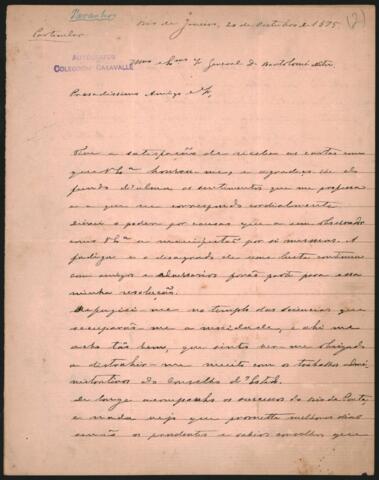 Paranhos
(2)
Particular
Rio de Janeiro, 20 de Outubro de 1875
AUTÓGRAFOS
COLECCIÓN CASAVALLE
Illmo e Exmo Sr General D. Bartolomé Mitre,
Presadissimo Amigo e Sr,
Tive a satisfação de receber as cartas com
que V Exa honrou-me, e agradeço-lhe do
fundo d'alma os sentimentos que me professa
e a que eu correspondo cordialmente.
Deixei o poder por causas que a um observador
como V Exa se manifestão por si mesmas. A
fadiga e o desagrado de uma lucta continua
com amigos e adversarios forão parte para essa
minha resolução.
Refugiei-me no templo das sciencias que
occuparão-me a mocidade, e ahi me
acho tão bem, que sinto ver-me obrigado
a distrahir-me muito com os trabalhos admi-
nistrativos do Conselho d'Estado.
De longe acompanho os successos do Rio da Prata,
e nada vejo que prometta melhores dias
senão os prudentes e sabios conselhos que